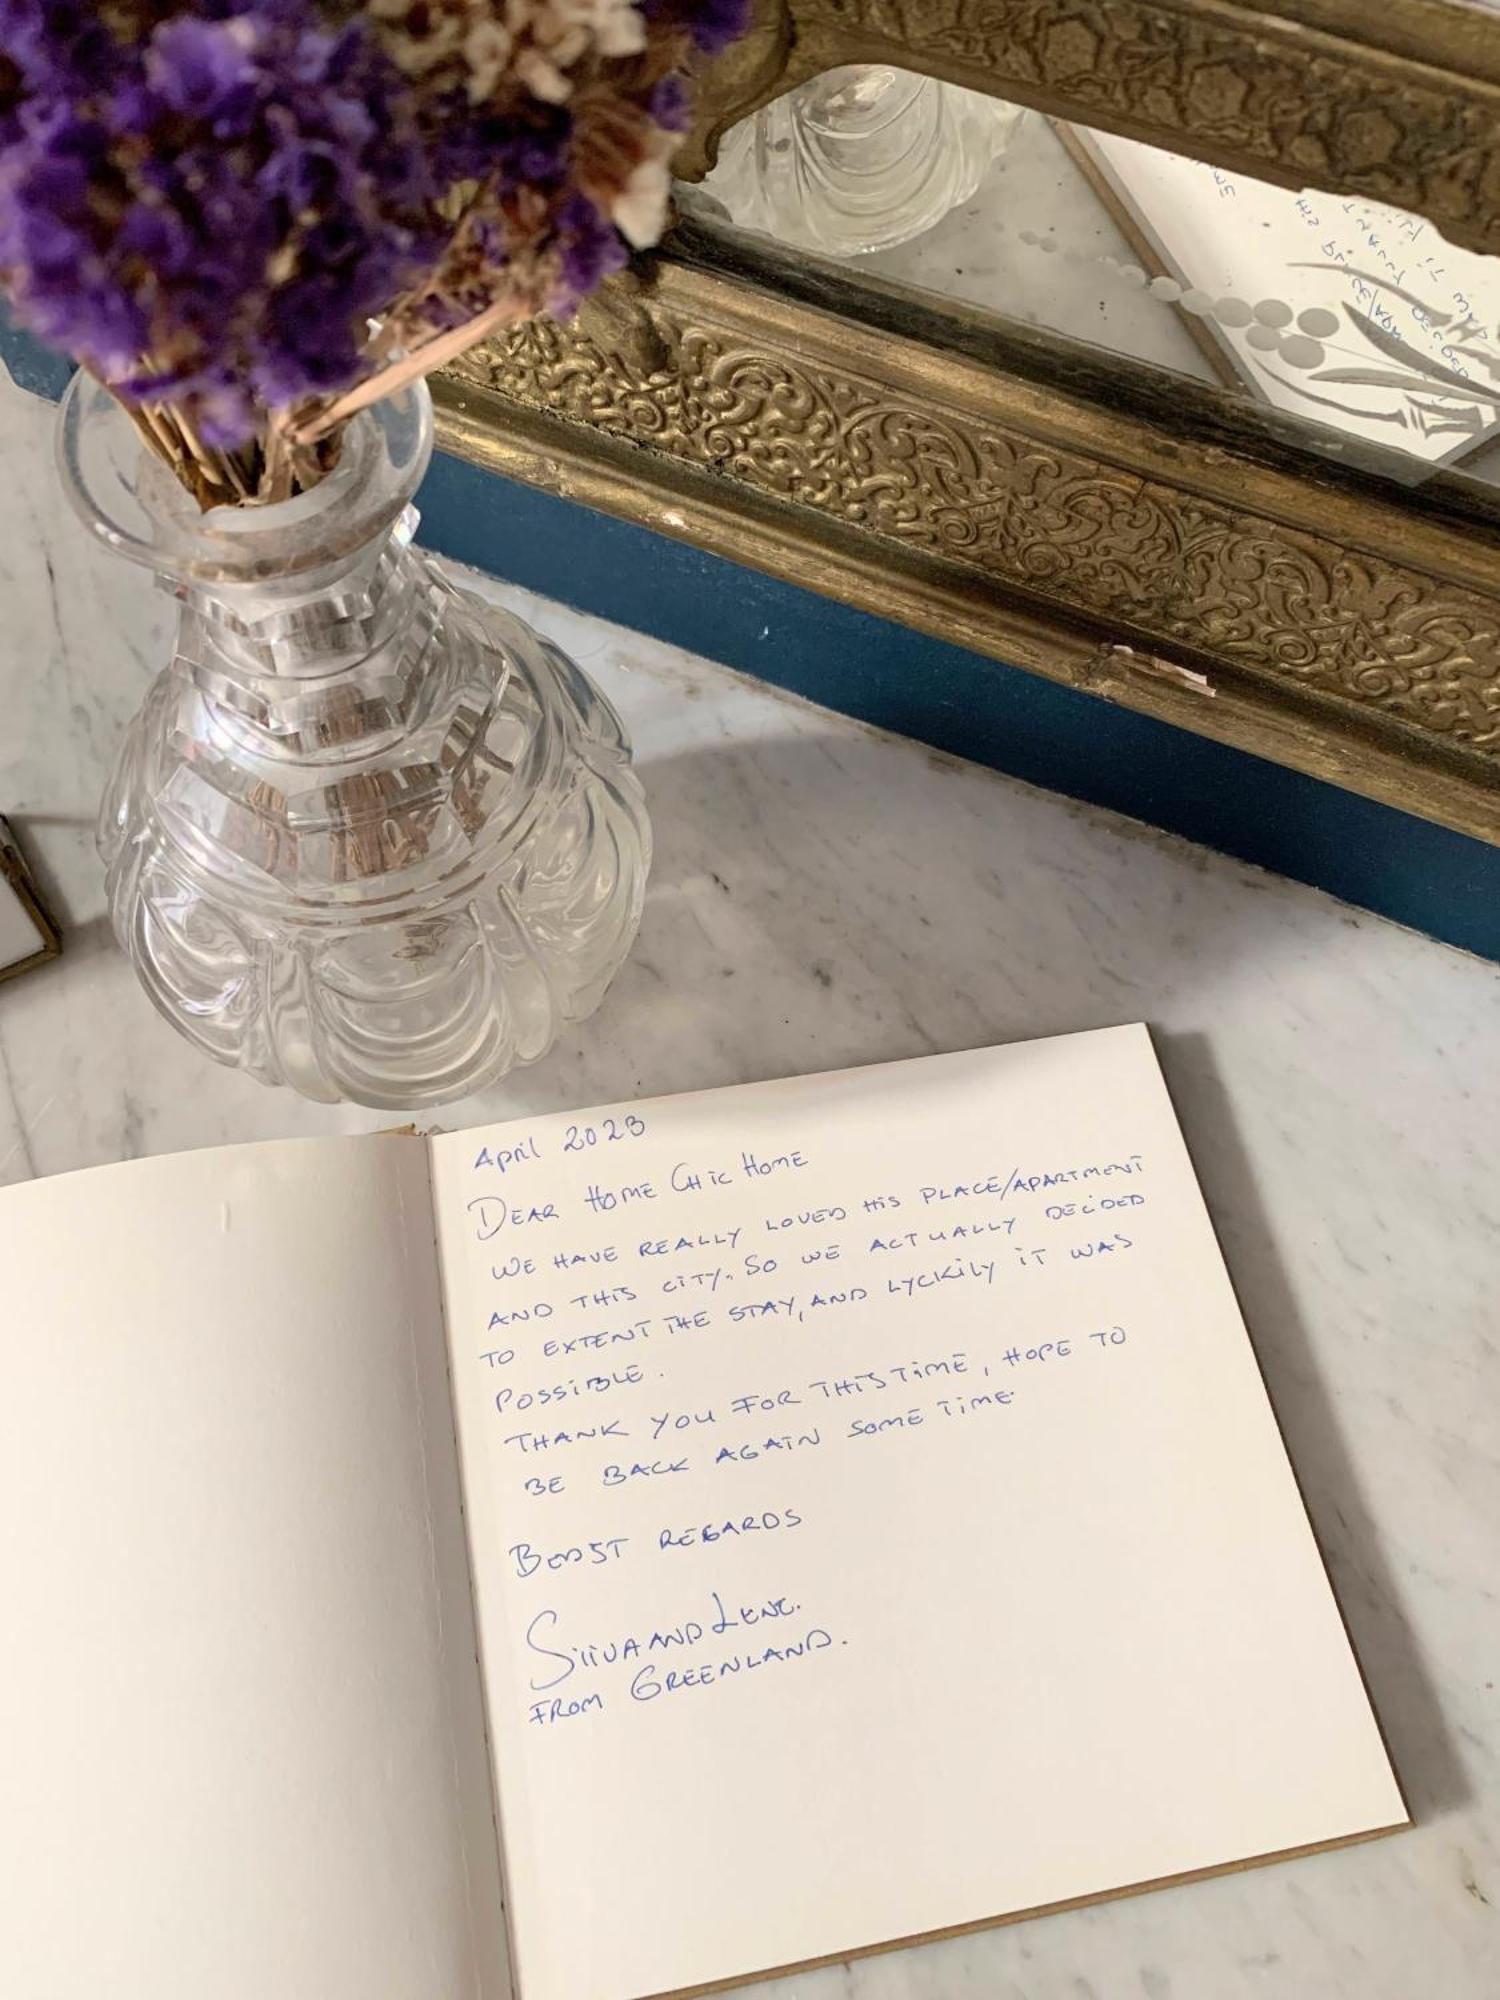 April 2023
DEAR HOME CHIC HOME
WE HAVE REALLY LOVED HIS PLACE/APARTMENT
AND THIS CITY. SO WE ACTUALLY DECIDED
TO EXTENT THE STAY, AND LYCKILY IT WAS
POSSIBLE.
THANK YOU FOR THIS TIME, HOPE TO
BE BACK AGAIN SOME TIME.
REGARDS
SIIVA AND LENE.
FROM GREENLAND.